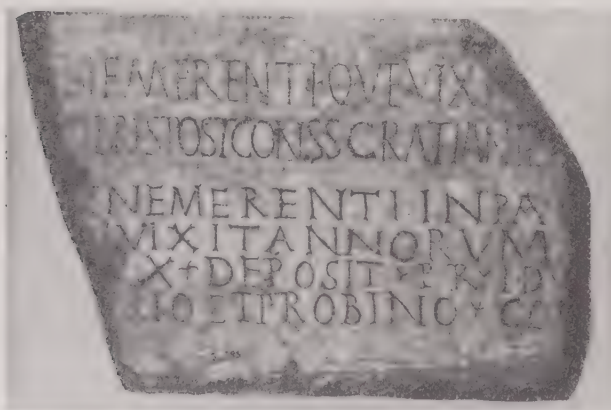 EMERENTI QVEVIX
RISTOSTCONSSGRATIAN
NEMERENTI INPA
VIXITANNORVM
X DEPOSIT PRID
IO ETPROBINO CO